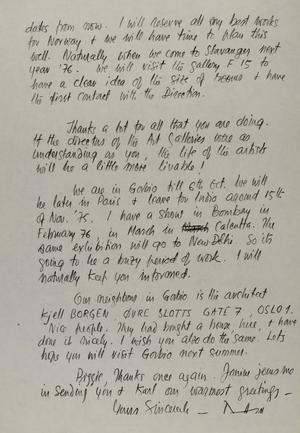 dates from now. I will reserve all my best works
for Norway & we will have time to plan this
well. Naturally when we come to Stavanger next
year '76. We will visit the Gallery F 15 to
have a clear idea of the size of & have
the first contact with the Direction.
Thanks a lot for all that you are doing.
If the directors of the Art Galleries were as
understanding as you, the life of the artists
will be a little more livable!
We are in Gorbio till 6th Oct. We will
be later in Paris & leave for India around 15th
of Nov. '75. I have a show in Bombay in
February 76, in March in Calcutta. The
same exhibition will go to New Delhi. So its
going to be a busy period of work. I will
naturally keep you informed.
Our neighbour in Gorbio is the architect
Kjell BORGEN, ÖVRE SLOTTS GATE 7, OSLO 1.
Nice people. They had bought a house, here, & have
done it nicely. I wish you also do the same. Lets
hope you will visit Gorbio next summer.
Thanks once again. Janine joins me
in sending you & Kurt our warmest greetings —
Yours Sincerely —